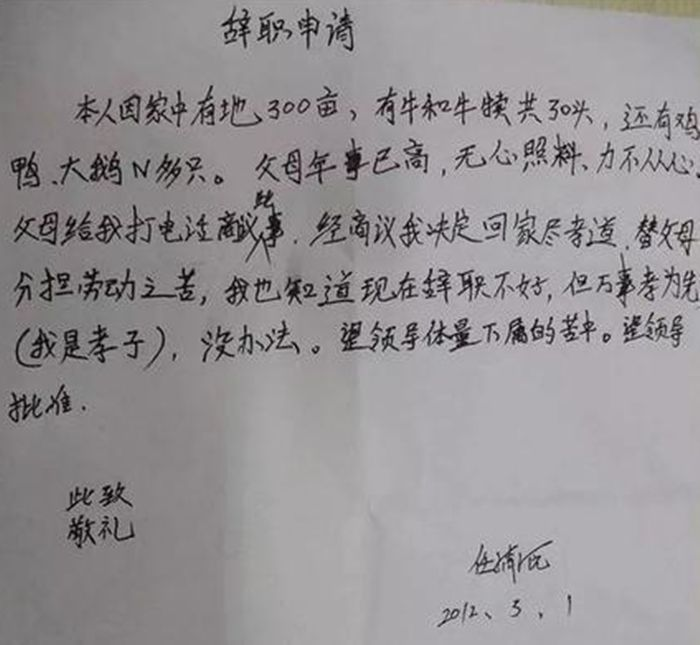 辞职申请
本人因家中有地300亩、有牛和牛犊共30头,还有鸡
鸭、大鹅N多只。父母年事已高,无心照料、力不从心、
父母给我打电话商议此事.经商议我决定回家尽孝道.替父母
分担劳动之苦,我也知道现在辞职不好,但万事孝为先
(我是孝子),没办法。望领导体量下属的苦中。望领导
批准.
此致
敬礼
2012、3、1